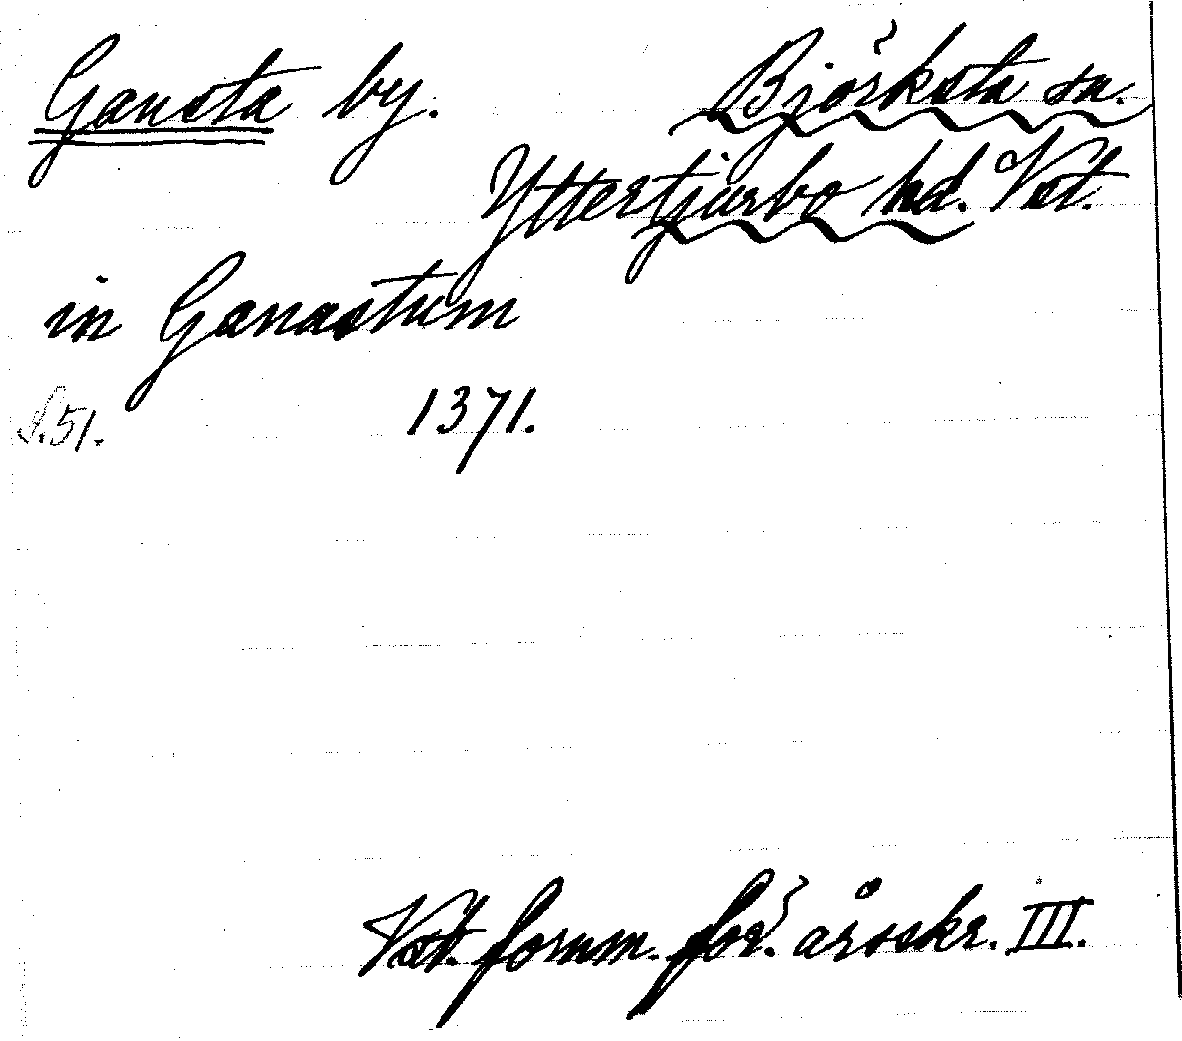 Gansta by. Björksta sn.
Yttertjurbo hd. Vst.
in Ganastum
S. 51. 1371.
Vst. fornm. för. årsskr. III.